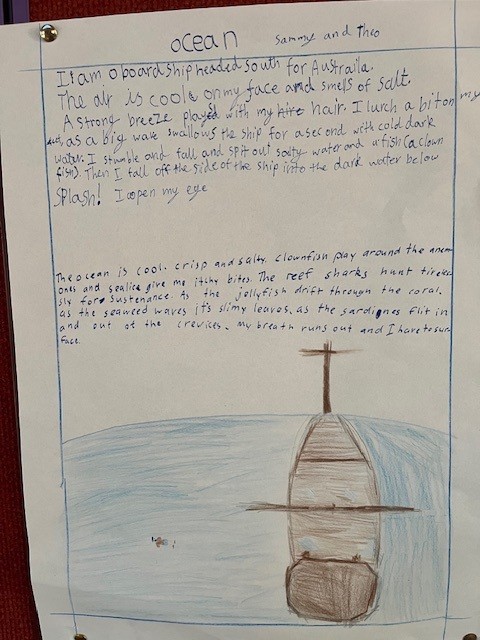 ocean Sammy and Theo
I am oboard ship headed south for Austraila.
The air is cool on my face and smells of salt.
A strong breeze played with my hire hair. I lurch a bit on my
as a big wave swallows the ship for a second with cold dark
water. I stumble and fall and spit out salty water and a fish (a clown
fish). Then I fall off the side of the ship into the dark water below
SPlash! I open my eye
The ocean is cool. crisp and salty. clownfish play around the anem-
ones and sealice give me itchy bites. The reef sharks hunt tirele-
sly for sustenance. As the jellyfish drift through the coral.
as the seaweed waves it's slimy leaves. as the sardignes flit in
and out of the crevices. my breath runs out and I have to sur-
face.